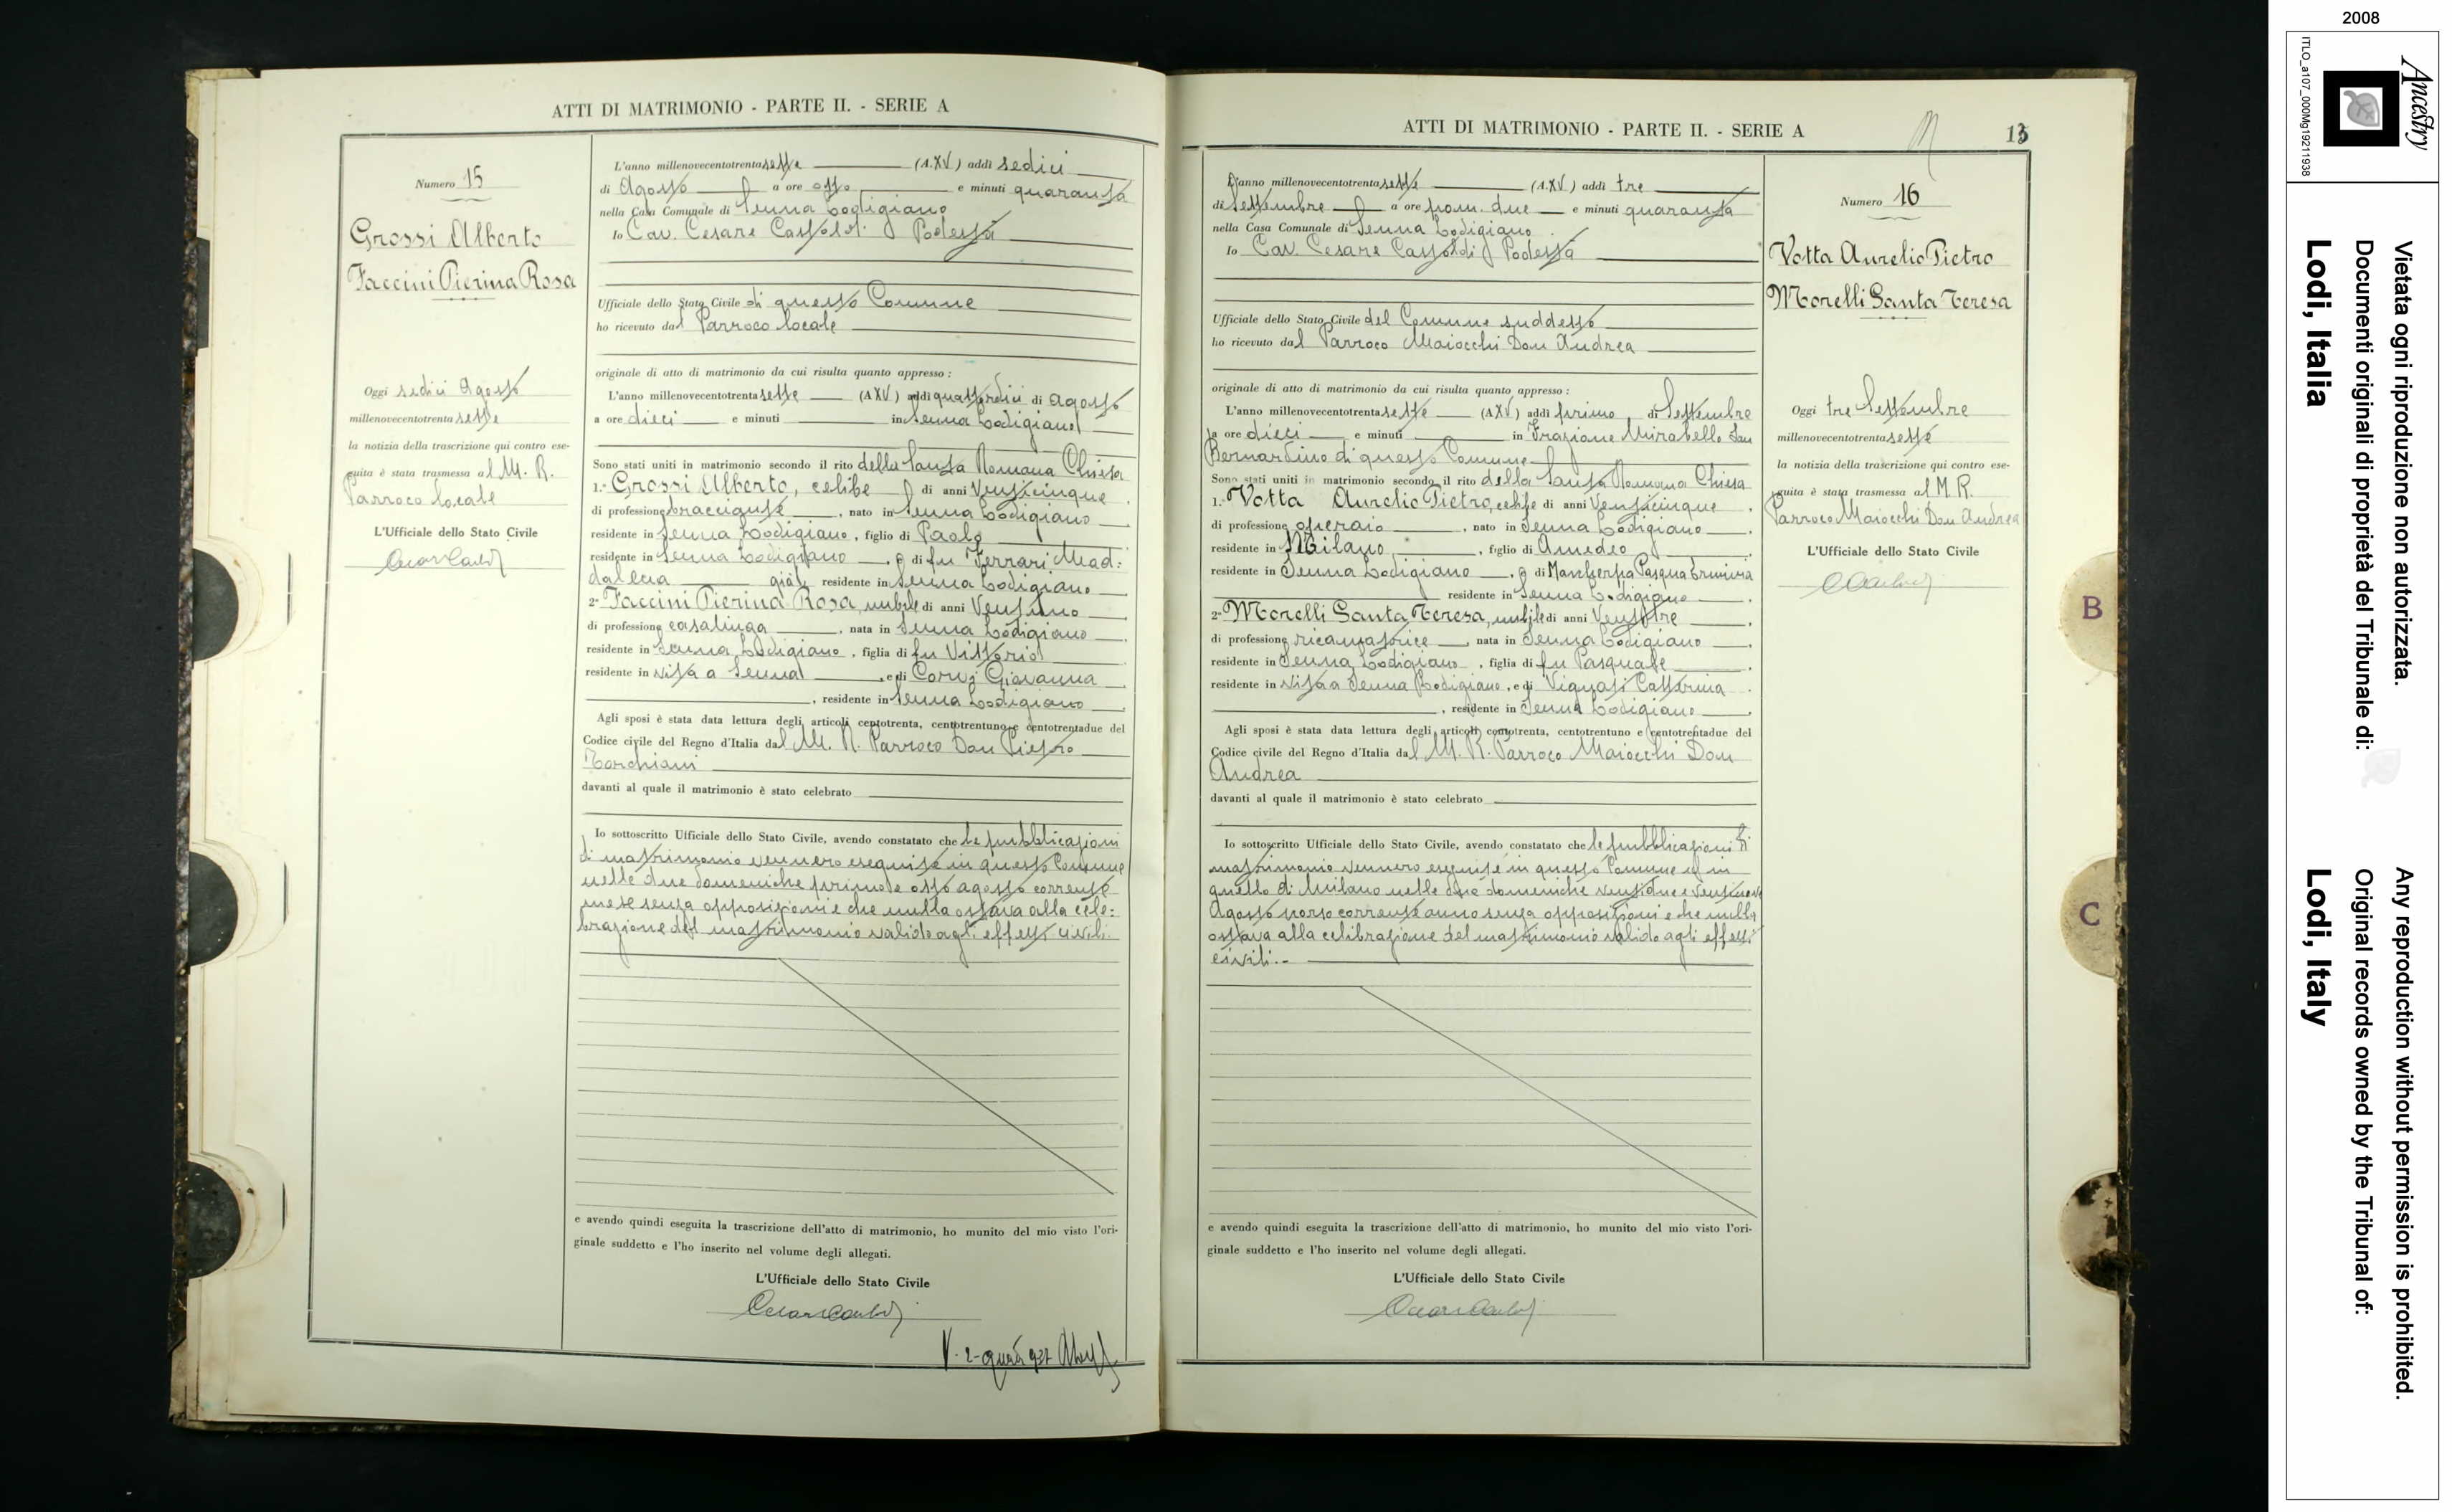 ATTI DI MATRIMONIO - PARTE II. - SERIE A
Numero 15
Grossi Alberto
Faccini Pierina Rosa
Oggi sedici Agosto
millenovecentotrenta sette
la notizia della trascrizione qui contro ese-
guita è stata trasmessa al M. R.
Parroco locale
L'Ufficiale dello Stato Civile
L'anno millenovecentotrenta sette (A. XV.) addì sedici
di Agosto a ore otto e minuti quaranta
nella Casa Comunale di Senna Lodigiano
Io Cav. Cesare Castoldi Podestà
Ufficiale dello Stato Civile di questo Comune
ho ricevuto dal Parroco locale
originale di atto di matrimonio da cui risulta quanto appresso :
L'anno millenovecentotrenta sette (A XV.) addì quattordici di agosto
a ore dieci e minuti in Senna Lodigiano
Sono stati uniti in matrimonio secondo il rito della Santa Romana Chiesa
1.º Grossi Alberto, celibe di anni Venticinque
di professione bracciante, nato in Senna Lodigiano
residente in Senna Lodigiano, figlio di Paolo
residente in Senna Lodigiano, e di fu Ferrari Mad:
dalena già residente in Senna Lodigiano
2.º Faccini Pierina Rosa, nubile di anni Ventuno
di professione casalinga, nata in Senna Lodigiano
residente in Senna Lodigiano, figlia di fu Vittorio
residente in vita a Senna, e di Corvi Giovanna
, residente in Senna Lodigiano
Agli sposi è stata data lettura degli articoli centotrenta, centotrentuno e centotrentadue del
Codice civile del Regno d'Italia dal M. R. Parroco Don Pietro
Torchiani
davanti al quale il matrimonio è stato celebrato
Io sottoscritto Ufficiale dello Stato Civile, avendo constatato che le pubblicazioni
di matrimonio vennero eseguite in questo Comune
nelle due domeniche primo e otto agosto corrente
mese senza opposizioni e che nulla ostava alla cele:
brazione del matrimonio valido agli effetti civili
e avendo quindi eseguita la trascrizione dell'atto di matrimonio, ho munito del mio visto l'ori-
ginale suddetto e l'ho inserito nel volume degli allegati.
L'Ufficiale dello Stato Civile
ATTI DI MATRIMONIO - PARTE II. - SERIE A
13
L'anno millenovecentotrenta sette (A. XV.) addì tre
di Settembre a ore pom. due e minuti quaranta
nella Casa Comunale di Senna Lodigiano
Io Cav. Cesare Castoldi Podestà
Ufficiale dello Stato Civile del Comune suddetto
ho ricevuto dal Parroco Maiocchi Don Andrea
originale di atto di matrimonio da cui risulta quanto appresso :
L'anno millenovecentotrenta sette (A XV.) addì primo, di Settembre
a ore dieci e minuti in Frazione Mirabello San
Bernardino di questo Comune
Sono stati uniti in matrimonio secondo il rito della Santa Romana Chiesa
1.º Votta Aurelio Pietro, celibe di anni Venticinque
di professione operaio, nato in Senna Lodigiano
residente in Milano, figlio di Amedeo
residente in Senna Lodigiano, e di Manherpa Pasqua Erminia
residente in Senna Lodigiano
2.º Morelli Santa Teresa, nubile di anni Ventitre
di professione ricamatrice, nata in Senna Lodigiano
residente in Senna Lodigiano, figlia di fu Pasquale
residente in vita a Senna Lodigiano, e di Vignati Catterina
, residente in Senna Lodigiano
Agli sposi è stata data lettura degli articoli centotrenta, centotrentuno e centotrentadue del
Codice civile del Regno d'Italia dal M. R. Parroco Maiocchi Don
Andrea
davanti al quale il matrimonio è stato celebrato
Io sottoscritto Ufficiale dello Stato Civile, avendo constatato che le pubblicazioni di
matrimonio vennero eseguite in questo Comune ed in
quello di Milano nelle due domeniche ventidue e ventinove
Agosto corrente anno senza opposizioni e che nulla
ostava alla celibrazione del matrimonio valido agli effetti
civili.-
e avendo quindi eseguita la trascrizione dell'atto di matrimonio, ho munito del mio visto l'ori-
ginale suddetto e l'ho inserito nel volume degli allegati.
L'Ufficiale dello Stato Civile
Numero 16
Votta Aurelio Pietro
Morelli Santa Teresa
Oggi tre Settembre
millenovecentotrenta sette
la notizia della trascrizione qui contro ese-
guita è stata trasmessa al M. R.
Parroco Maiocchi Don Andrea
L'Ufficiale dello Stato Civile
B
C
2008
Ancestry
ITLO_a107_000Mg19211938
Vietata ogni riproduzione non autorizzata.
Documenti originali di proprietà del Tribunale di:
Lodi, Italia
Any reproduction without permission is prohibited.
Original records owned by the Tribunal of:
Lodi, Italy